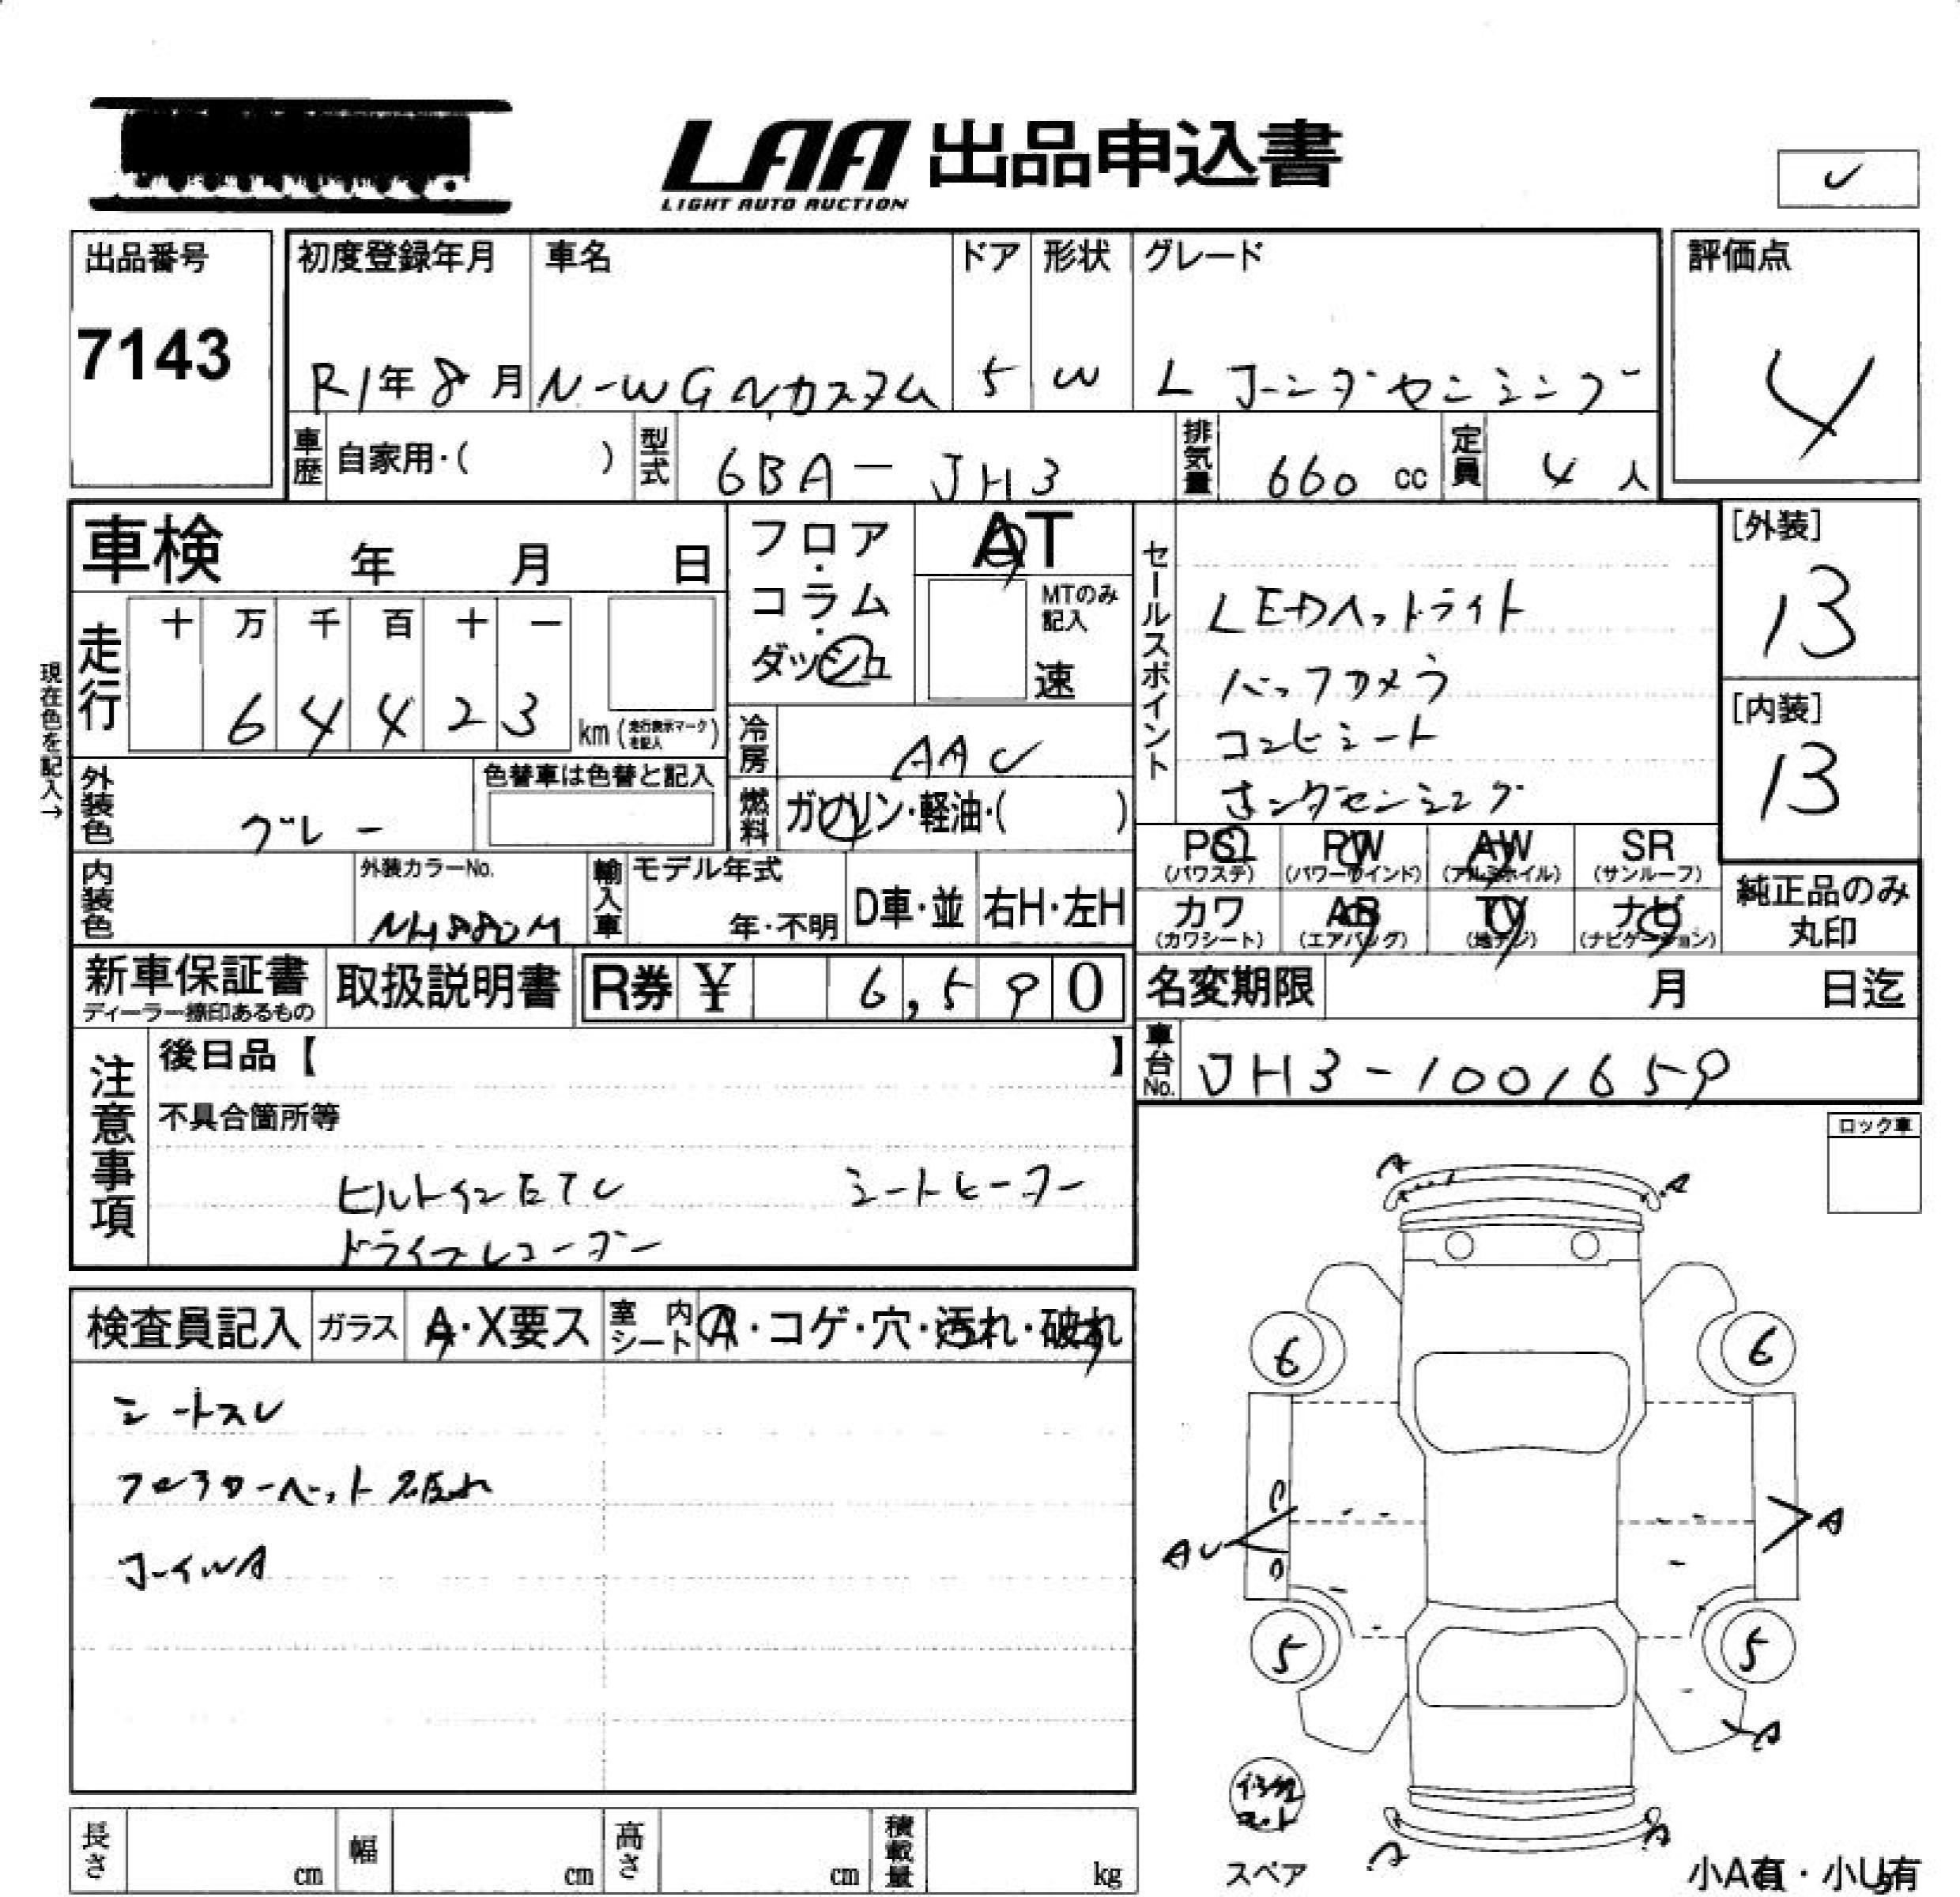 LAA 出品申込書
LIGHT AUTO AUCTION
出品番号
7143
初度登録年月
R1年8月
車名
N-WGNカスタム
ドア
5
形状
W
グレード
L ホンダセンシング
評価点
4
車歴
自家用・( )
型式
6BA-JH3
排気量
660 cc
定員
4 人
車検 年 月 日
フロア・コラム・ダッシュ
AT
MTのみ記入
速
セールスポイント
LEDヘッドライト
バックカメラ
コンビシート
ホンダセンシング
[外装]
13
[内装]
13
現在色を記入→
走行
十 万 千 百 十 一
6 4 4 2 3
km (走行表示マークを記入)
冷房
AAC
外装色
グレー
色替車は色替と記入
燃料
ガソリン・軽油・( )
PS (パワステ)
PW (パワーウインド)
AW (アルミホイル)
SR (サンルーフ)
カワ (カワシート)
AB (エアバッグ)
TV (地デジ)
ナビ (ナビゲーション)
純正品のみ
丸印
内装色
外装カラーNo.
NH880M
輸入車
モデル年式
年・不明
D車・並
右H・左H
新車保証書
ディーラー捺印あるもの
取扱説明書
R券 ¥ 6,590
名変期限 月 日迄
車台No.
JH3-1001659
注意事項
後日品【 】
不具合箇所等
ビルトインETC シートヒーター
ドライブレコーダー
ロック車
検査員記入
ガラス
A・X要ス
室内シート
A・コゲ・穴・汚れ・破れ
シートスレ
フロアカーペット破れ
ホイルA
A
A
6
6
AU
A
5
5
A
修理キット
スペア
小A有・小U有
長さ cm
幅 cm
高さ cm
積載量 kg